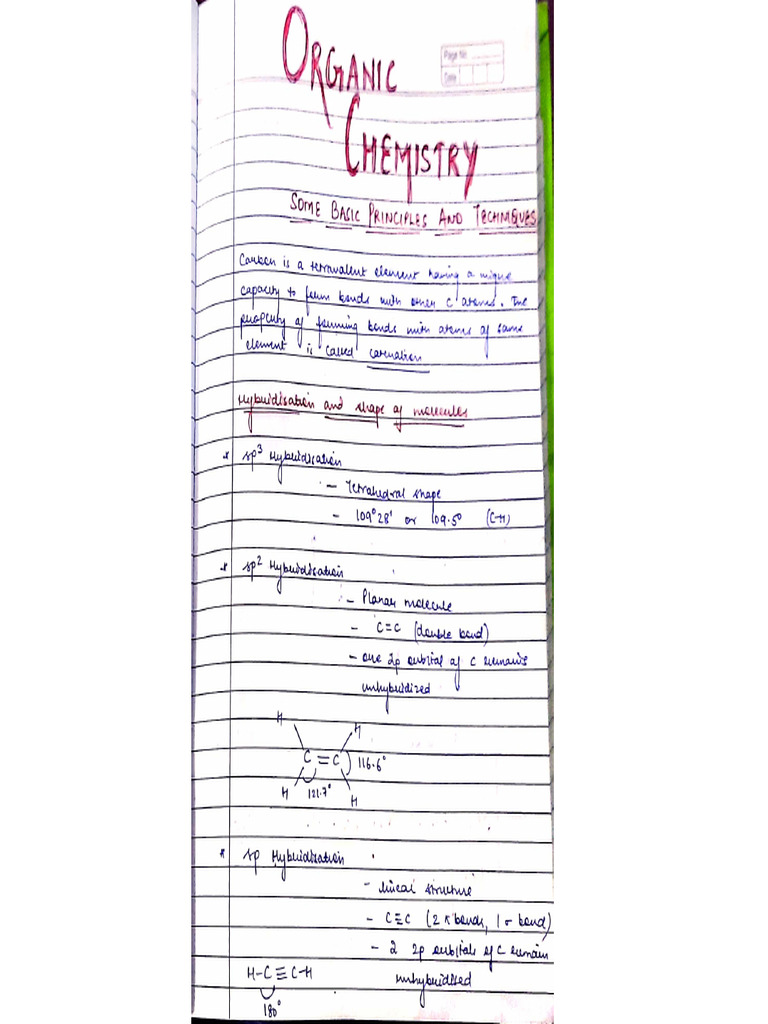 ORGANIC
Page No.
Date
CHEMISTRY
SOME BASIC PRINCIPLES AND TECHNIQUES
Carbon is a tetravalent element having a unique
capacity to form bonds with other C atoms. The
property of forming bonds with atoms of same
element is called catenation
Hybridisation and shape of molecules
* sp³ Hybridisation
- Tetrahedral shape
- 109°28' or 109.5° (C-H)
* sp² Hybridisation
- Planar molecule
- C=C (double bond)
- one 2p orbital of C remains
unhybridized
H H
C=C 116.6°
H 121.7° H
* sp Hybridisation
- linear structure
- C≡C (2 π bonds, 1 σ bond)
- 2 2p orbitals of C remain
H-C≡C-H unhybridised
180°